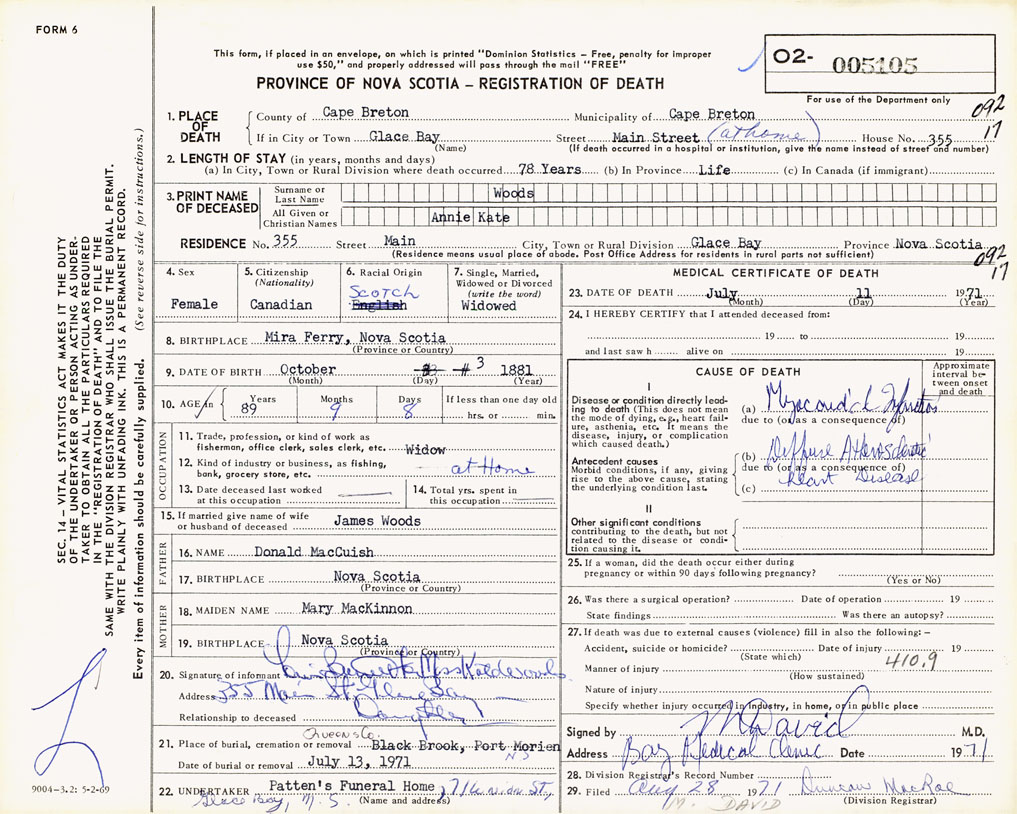 FORM 6
This form, if placed in an envelope, on which is printed "Dominion Statistics – Free, penalty for improper
use $50," and properly addressed will pass through the mail "FREE"
PROVINCE OF NOVA SCOTIA – REGISTRATION OF DEATH
O2- 005105
For use of the Department only
092
17
1. PLACE OF DEATH
County of Cape Breton Municipality of Cape Breton
If in City or Town Glace Bay Street Main Street (at home) House No. 355
(Name) (If death occurred in a hospital or institution, give the name instead of street and number)
2. LENGTH OF STAY (in years, months and days)
(a) In City, Town or Rural Division where death occurred 78 Years (b) In Province Life (c) In Canada (if immigrant)
3. PRINT NAME OF DECEASED
Surname or Last Name Woods
All Given or Christian Names Annie Kate
RESIDENCE No. 355 Street Main City, Town or Rural Division Glace Bay Province Nova Scotia
(Residence means usual place of abode. Post Office Address for residents in rural parts not sufficient)
092
17
4. Sex
Female
5. Citizenship
(Nationality)
Canadian
6. Racial Origin
Scotch
English
7. Single, Married,
Widowed or Divorced
(write the word)
Widowed
8. BIRTHPLACE Mira Ferry, Nova Scotia
(Province or Country)
9. DATE OF BIRTH October 3 1881
(Month) (Day) (Year)
10. AGE in
Years 89
Months 9
Days 8
If less than one day old
hrs. or min.
OCCUPATION
11. Trade, profession, or kind of work as
fisherman, office clerk, sales clerk, etc. Widow
12. Kind of industry or business, as fishing,
bank, grocery store, etc. at Home
13. Date deceased last worked
at this occupation
14. Total yrs. spent in
this occupation
15. If married give name of wife
or husband of deceased James Woods
FATHER
16. NAME Donald MacCuish
17. BIRTHPLACE Nova Scotia
(Province or Country)
MOTHER
18. MAIDEN NAME Mary MacKinnon
19. BIRTHPLACE Nova Scotia
(Province or Country)
20. Signature of informant
Address 355 Main St. Glace Bay
Relationship to deceased Daughter
Queens Co.
21. Place of burial, cremation or removal Black Brook, Port Morien
N S
Date of burial or removal July 13, 1971
22. UNDERTAKER Patten's Funeral Home, 71 St.,
Glace Bay, N. S. (Name and address)
MEDICAL CERTIFICATE OF DEATH
23. DATE OF DEATH July 11 1971
(Month) (Day) (Year)
24. I HEREBY CERTIFY that I attended deceased from:
19 to 19
and last saw h alive on 19
CAUSE OF DEATH
Approximate
interval be-
tween onset
and death
I
Disease or condition directly lead-
ing to death (This does not mean
the mode of dying, e.g., heart fail-
ure, asthenia, etc. It means the
disease, injury, or complication
which caused death.)
(a) Myocardial Infarction
due to (or as a consequence of)
Antecedent causes
Morbid conditions, if any, giving
rise to the above cause, stating
the underlying condition last.
(b) Diffuse Atherosclerotic
due to (or as a consequence of)
Heart Disease
(c)
II
Other significant conditions
contributing to the death, but not
related to the disease or condi-
tion causing it.
25. If a woman, did the death occur either during
pregnancy or within 90 days following pregnancy?
(Yes or No)
26. Was there a surgical operation? Date of operation 19
State findings Was there an autopsy?
27. If death was due to external causes (violence) fill in also the following: –
Accident, suicide or homicide? Date of injury 19
(State which)
410.9
Manner of injury
(How sustained)
Nature of injury
Specify whether injury occurred in industry, in home, or in public place
Signed by M David M.D.
Address Bay Medical Clinic Date 1971
28. Division Registrar's Record Number
29. Filed Aug 28 1971 Duncan MacRae
M. DAVID (Division Registrar)
SEC. 14 – VITAL STATISTICS ACT MAKES IT THE DUTY
OF THE UNDERTAKER OR PERSON ACTING AS UNDER-
TAKER TO OBTAIN ALL THE PARTICULARS REQUIRED
IN THE "REGISTRATION OF DEATH" AND TO FILE THE
SAME WITH THE DIVISION REGISTRAR WHO SHALL ISSUE THE BURIAL PERMIT.
WRITE PLAINLY WITH UNFADING INK. THIS IS A PERMANENT RECORD.
Every item of information should be carefully supplied. (See reverse side for instructions.)
9004-3.2: 5-2-69